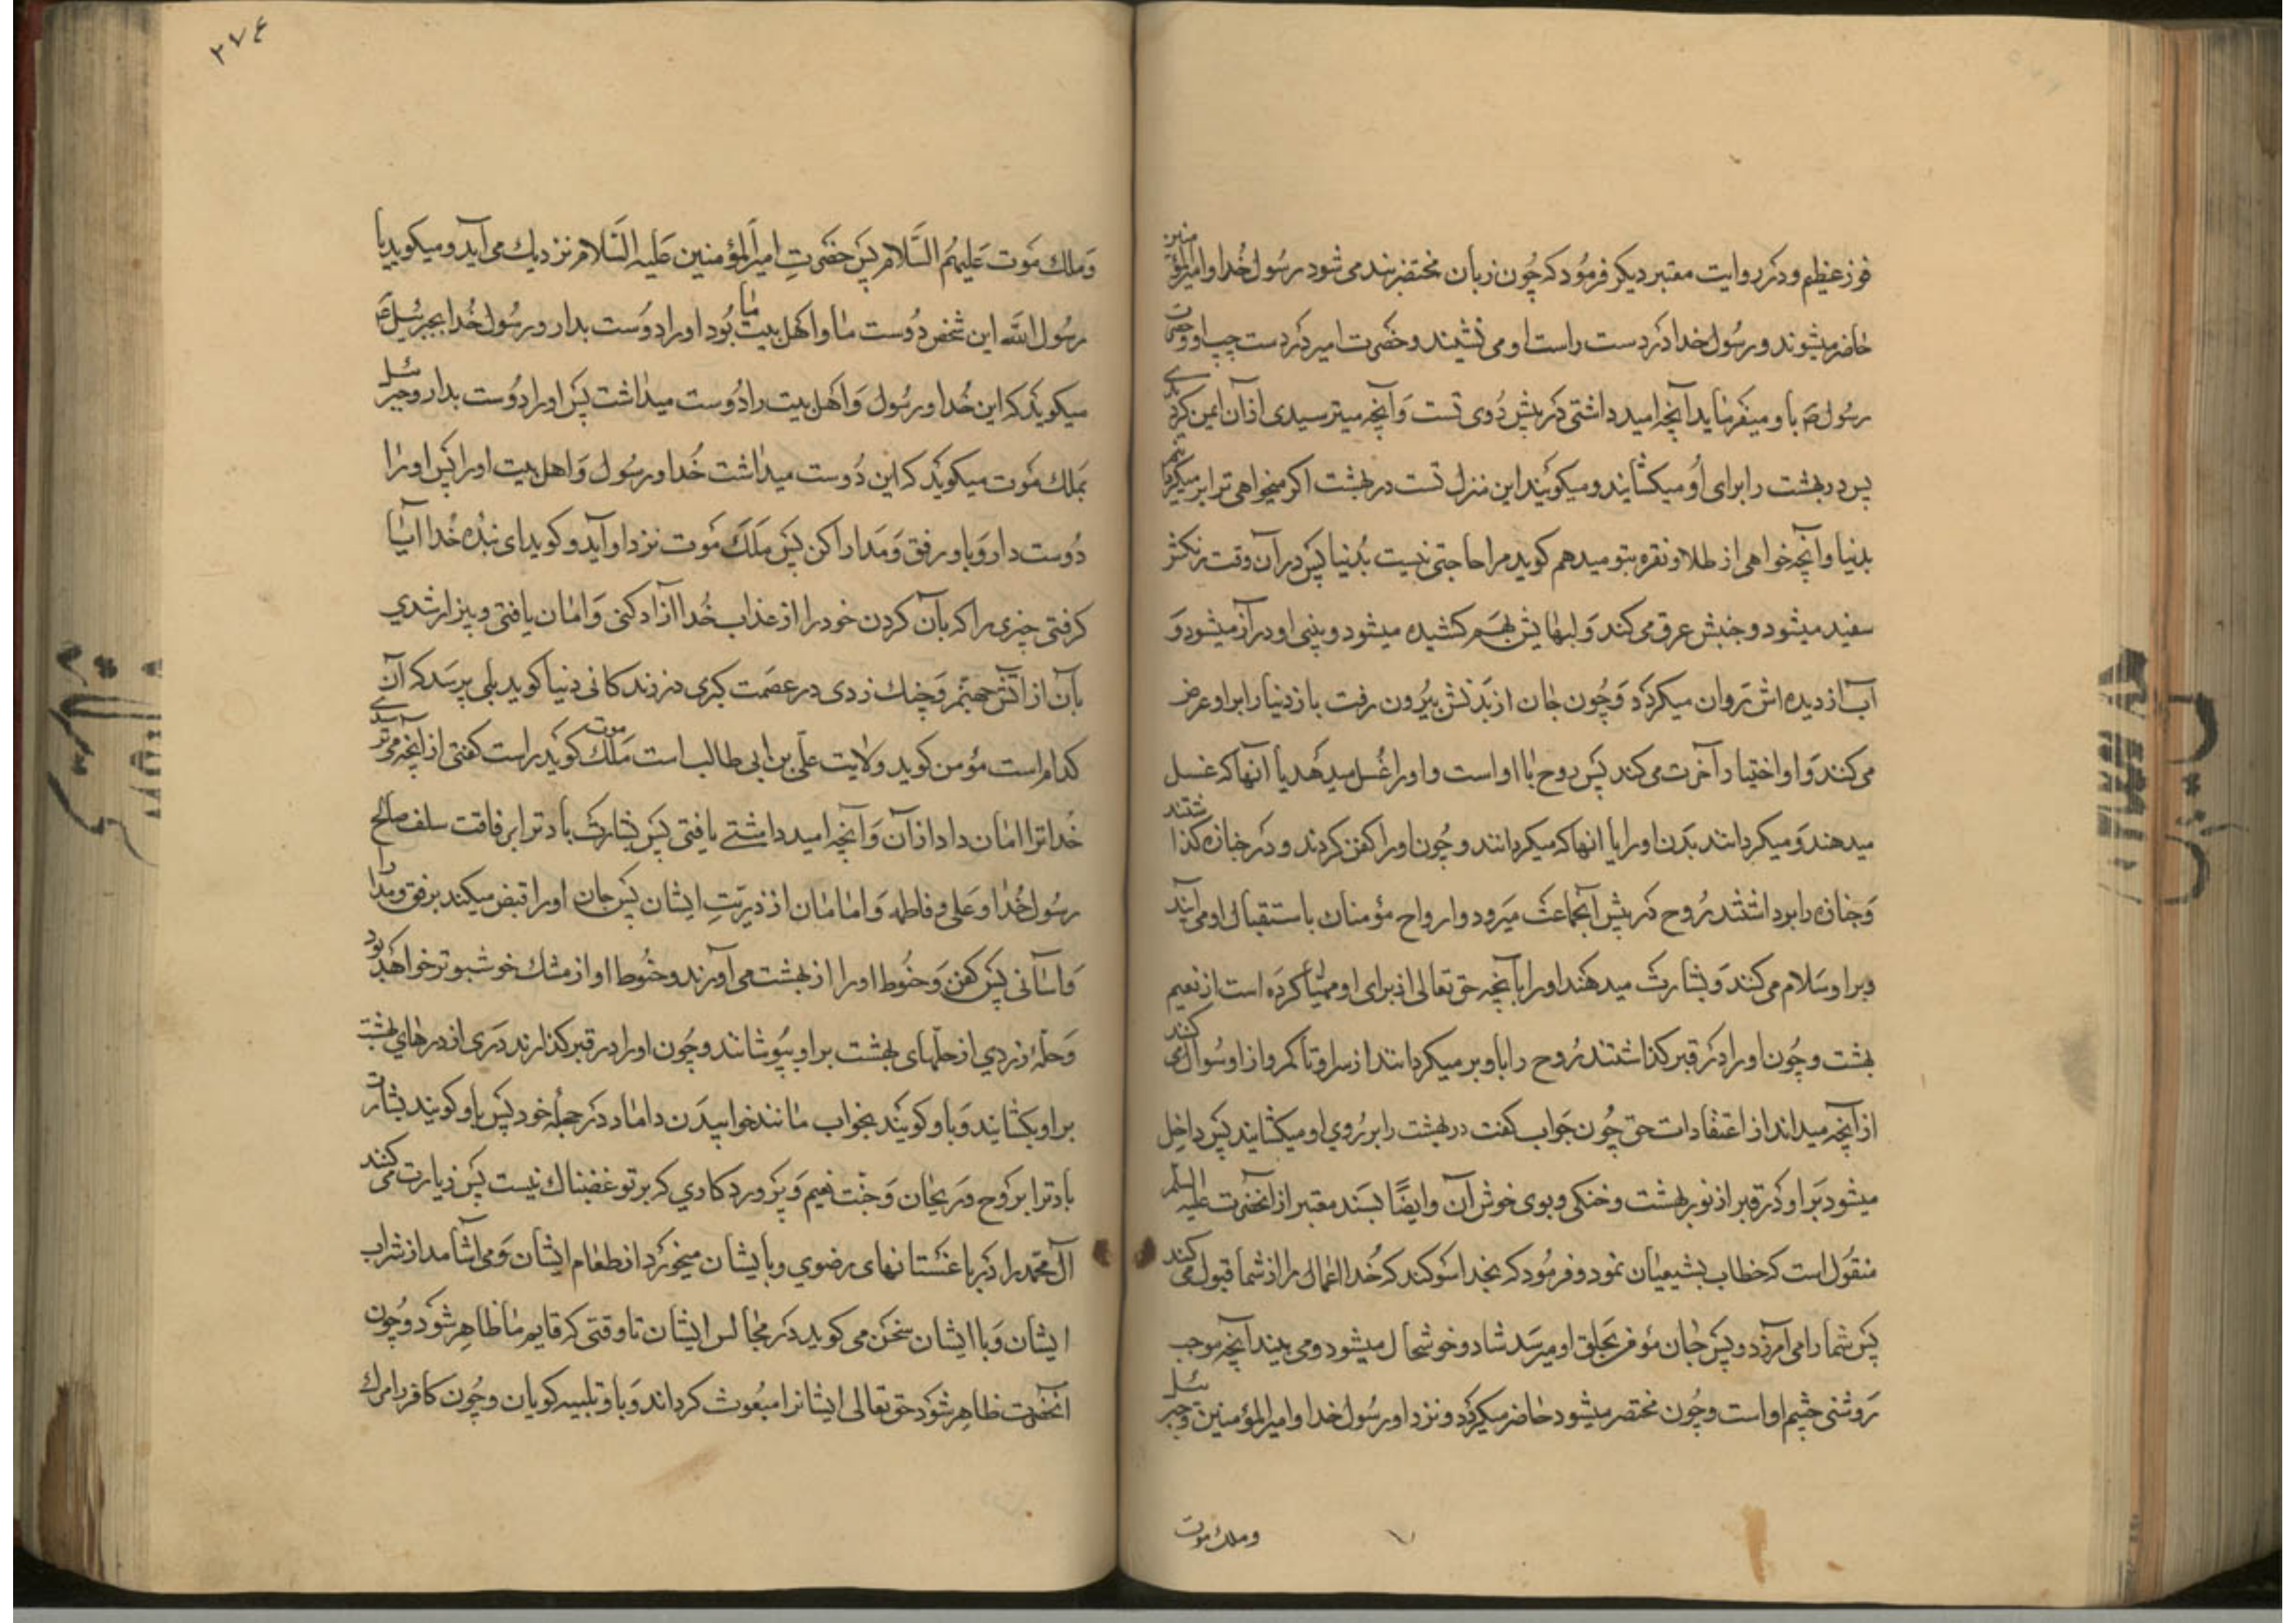 فوز عظیم و در روایت معتبر دیکر فرمود که چون زبان محتضر بند می شود رسول خدا و امیرالمؤمنین
حاضر میشوند و رسول خدا در دست راست او می نشیند و حضرت امیر در دست چپ او و حضرت
رسول ص باو میفرماید آنچه امید داشتی در پیش روی تست و آنچه میترسیدی از آن ایمن کردیدی
پس در بهشت را برای او میکشایند و میکویند این منزل تست در بهشت اکر میخواهی ترا بر میکردانیم
بدنیا و آنچه خواهی از طلا و نقره بتو میدهم کوید مرا حاجتی نیست بدنیا پس در آن وقت رنکش
سفید میشود و جبینش عرق می کند و لبهایش بهم کشیده میشود و بینی او دراز میشود و
آب از دیده اش روان میکردد و چون جان از بدنش بیرون رفت باز دنیا را بر او عرض
می کنند و او اختیار آخرت می کند پس روح با او است و او را غسل میدهد با آنها که غسل
میدهند و میکردانند بدن او را با انها که میکردانند و چون او را کفن کردند و در جنازه کذاشتند
و جنازه را برداشتند روح در پیش آنجماعت میرود و ارواح مؤمنان باستقبال او می آیند
و بر او سلام می کنند و بشارت میدهند او را بآنچه حق تعالی از برای او مهیا کرده است از نعیم
بهشت و چون او را در قبر کذاشتند روح را باو بر میکردانند از سر او تا کمر و از او سوال می کنند
از آنچه میداند از اعتقادات حق چون جواب کفت در بهشت را بر روی او میکشایند پس داخل
میشود بر او در قبر از نور بهشت و خنکی و بوی خوش آن و ایضًا بسند معتبر از آنحضرت علیه السلم
منقول است که خطاب بشیعیان نمود و فرمود که بخدا سوکند که خدا اعمال را از شما قبول می کند
پس شما را می آمرزد و پس جان مؤمن بحلق او میرسد شاد و خوشحال میشود و می بیند آنچه موجب
روشنی چشم او است و چون محتضر میشود حاضر میکردد و نزد او رسول خدا و امیرالمؤمنین و جبرئیل
و ملك موت
۲۷۴
و ملك موت علیهم السّلام پس حضرت امیرالمؤمنین علیه السّلام نزدیك می آید و میکوید یا
رسول الله این شخص دوست ما و اهل بیت ما بود او را دوست بدار و رسول خدا بجبرئیل ع
میکوید که این خدا و رسول و اهل بیت را دوست میداشت پس او را دوست بدار و جبرئیل
بملك موت میکوید که این دوست میداشت خدا و رسول و اهل بیت او را پس او را
دوست دار و باو رفق و مدارا کن پس ملك موت نزد او آید و کوید ای بنده خدا آیا
کرفتی چیزی را که بآن کردن خود را از عذاب خدا ازاد کنی و امان یافتی و بیزار شدی
بآن از اتش جهنم و چنك زدی در عصمت کبری در زندکانی دنیا کوید بلی پرسد که آن
کدام است مؤمن کوید ولایت علی بن ابی طالب است ملك موت کوید راست کفتی از آنچه می ترسیدی
خدا ترا امان داد از آن و آنچه امید داشتی یافتی پس بشارت باد ترا برفاقت سلف صالح
رسول خدا و علی و فاطمه و امامان از ذریّت ایشان پس جان او را قبض میکند برفق و مدارا
و آسانی پس کفن و حنوط او را از بهشت می آورند و حنوط او از مشك خوشبوتر خواهد بود
و حلّهٔ زردی از حلّهای بهشت بر او بپوشانند و چون او را در قبر کذارند دری از درهای بهشت
بر او بکشایند و باو کویند بخواب مانند خوابیدن داماد در حجلهٔ خود پس باو کویند بشارت
باد ترا بروح و ریحان و جنّت نعیم و پروردکاری که بر تو غضبناك نیست پس زیارت می کند
آل محمد را در باغستانهای رضوی و با ایشان میخورد از طعام ایشان و می آشامد از شراب
ایشان و با ایشان سخن می کوید در مجالس ایشان تا وقتی که قایم ما ظاهر شود و چون
آنحضرت ظاهر شود حق تعالی ایشانرا مبعوث کرداند و با و تلبیه کویان و چون کافر را مرك